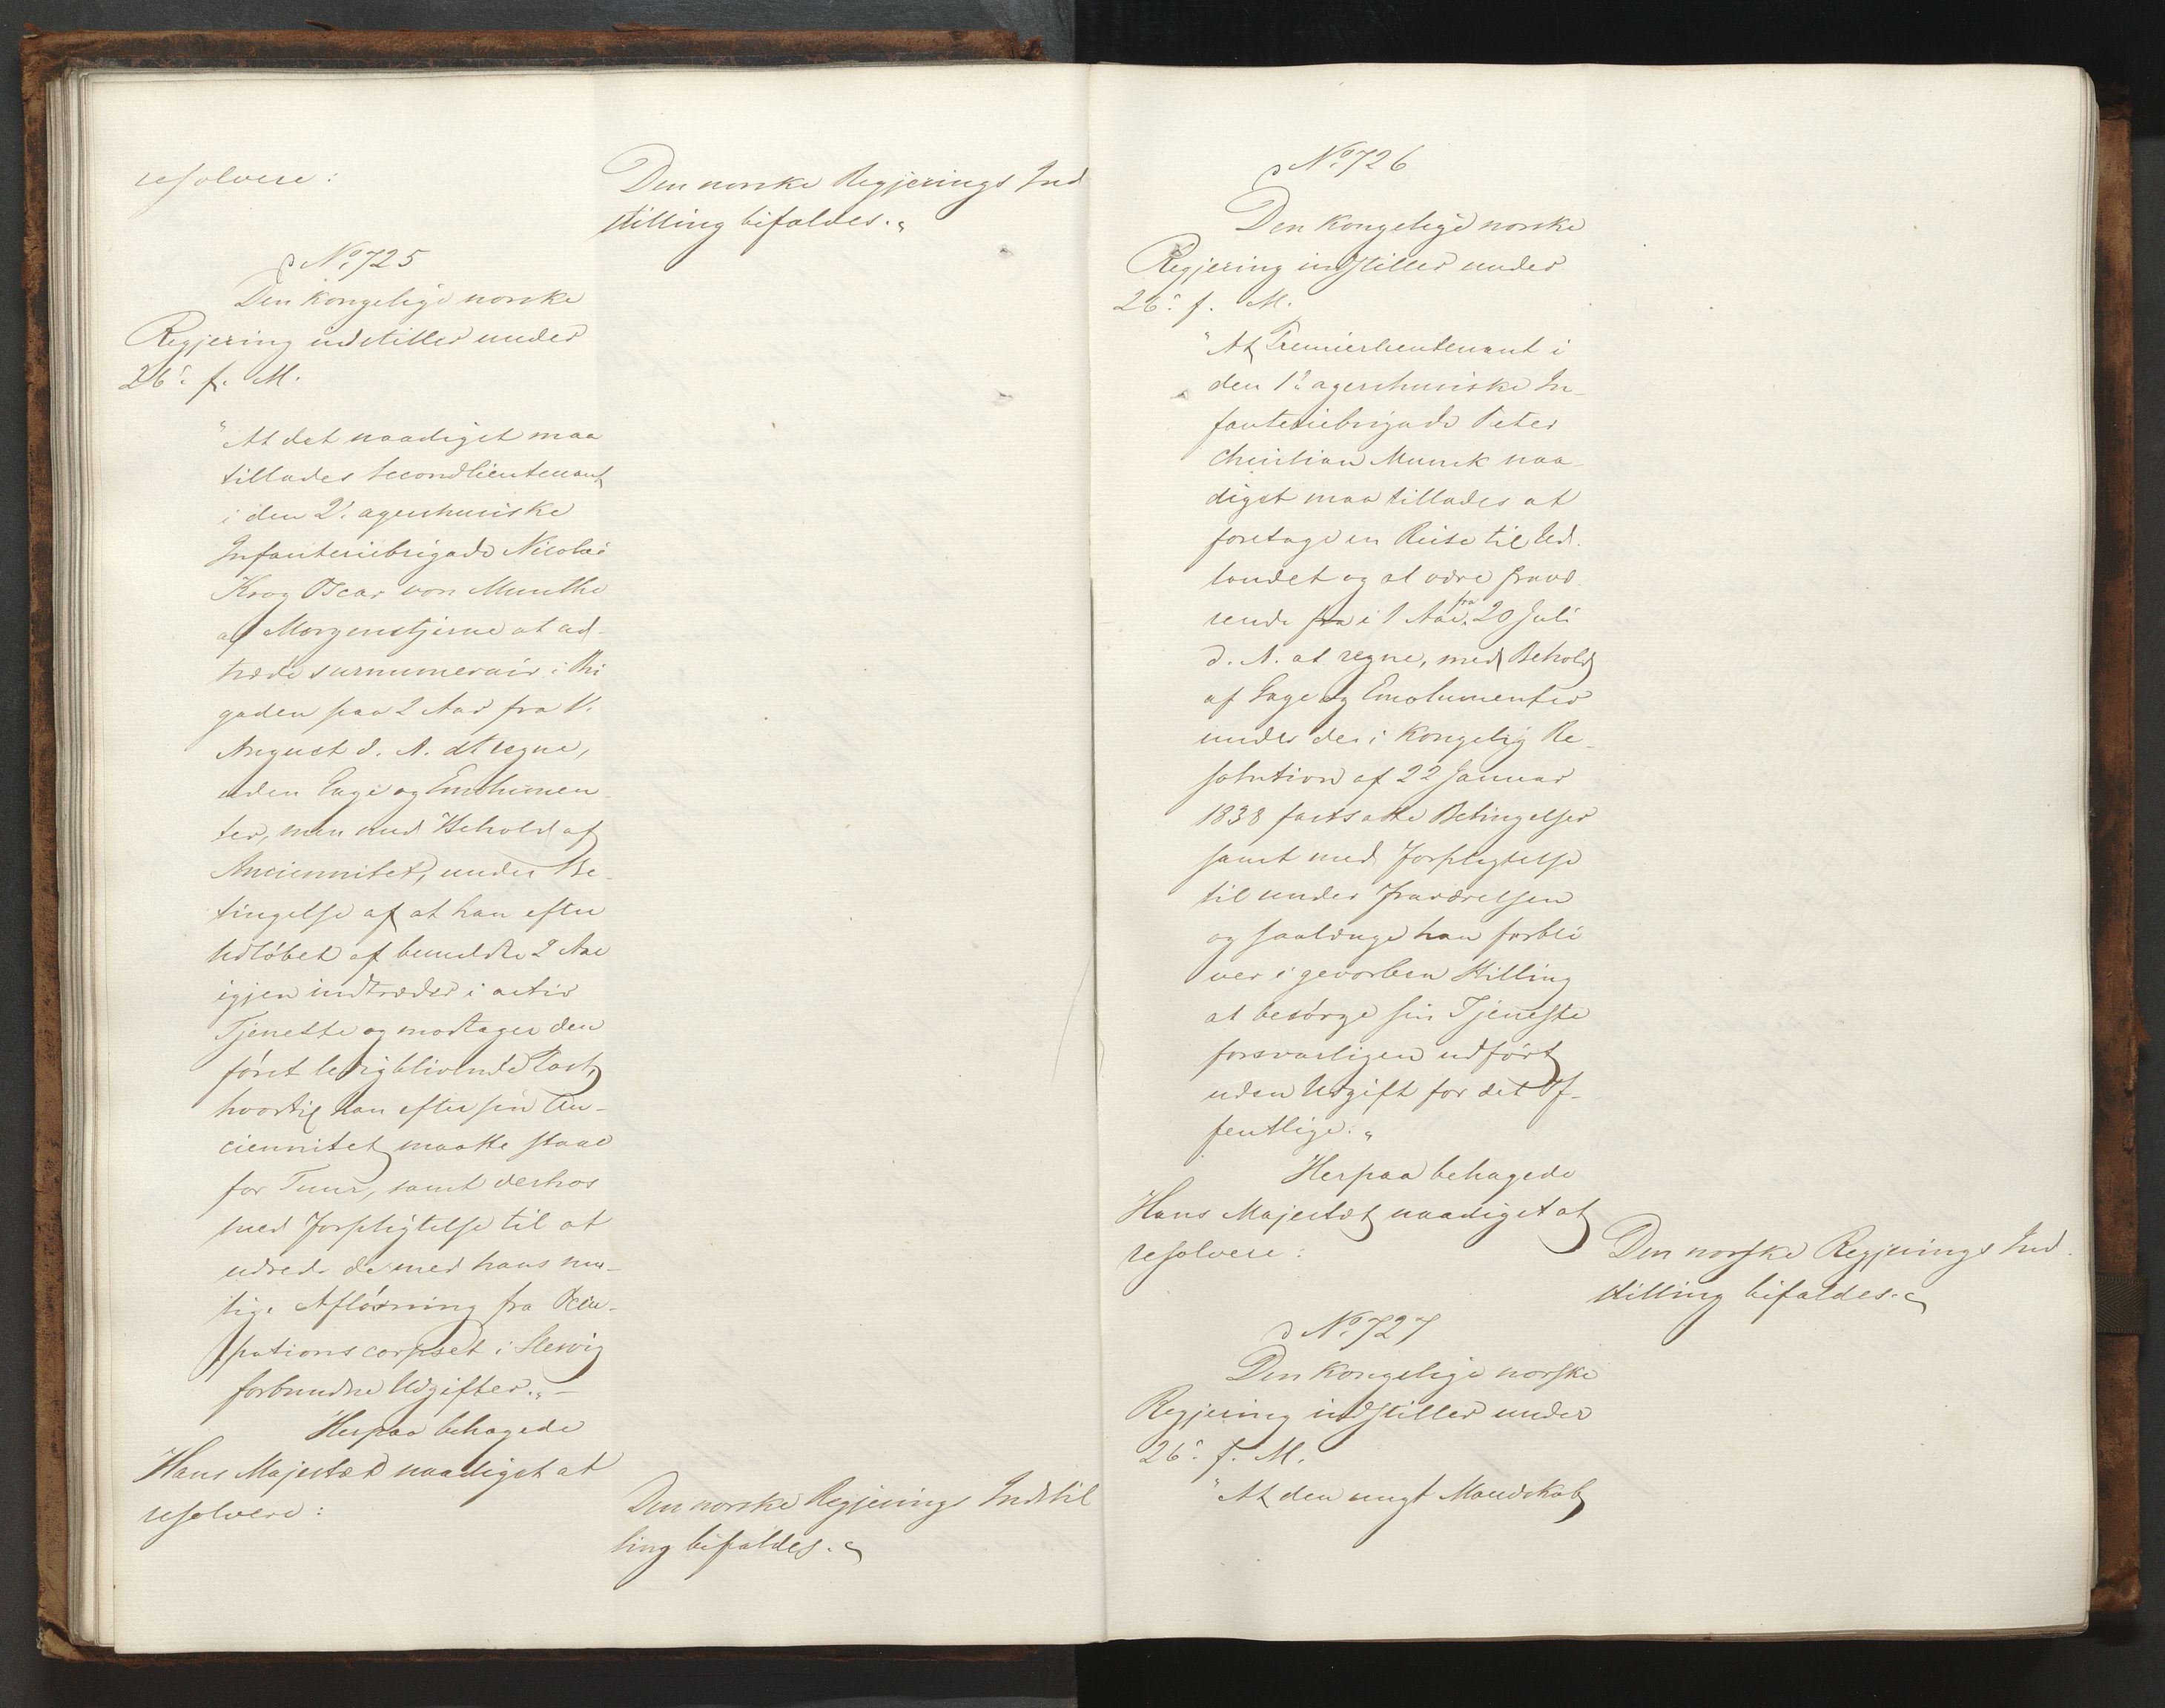 resolvere:
Den norske Regjerings Ind
stilling bifaldes."
No 725
Den kongelige norske
Regjering indstiller under
26: f. M.
"At det naadigst maa
tillades Secondlieutenant
i den 2: agershusiske
Infanteriebrigade Nicolai
Krog Oscar von Munthe
af Morgenstjerne at ud-
træde surnumerair i Bri
gaden paa 2 Aar fra 1.
August d. A. at regne,
uden Gage og Emolumen-
ter, men med Behold af
Anciennitet, under Be-
tingelse af at han efter
Udløbet af bemeldte 2 Aar
igjen indtræder i activ
Tjeneste og modtager den
først ledigblivende Post,
hvortil han efter sin An-
ciennitet maatte staae
for Tuur, samt derhos
med Forpligtelse til at
udrede de med hans mu-
lige Afløsning fra Occu-
pationscorpset i Slesvig
forbundne Udgifter." -
Herpaa behagede
Hans Majestæt naadigst at
resolvere:
Den norske Regjerings Indstil
ling bifaldes."
No 726
Den kongelige norske
Regjering indstiller under
26: f. M.
"At Premierlieutenant i
den 1: agershusiske In-
fanteriebrigade Peter
Christian Munck naa-
digst maa tillades at
foretage en Reise til Ud-
landet og at være fravæ-
rende fra i 1 Aar, fra 20 Juli
d. A. at regne, med Behold
af Gage og Emolumenter
under de i Kongelig Re-
solution af 22 Januar
1838 fastsatte Betingelser
samt med Forpligtelse
til under Fraværelsen
og saalænge han forbli
ver i gevorben Stilling
at besørge sin Tjeneste
forsvarligen udført
uden Udgift for det Of-
fentlige."
Herpaa behagede
Hans Majestæt naadigst at
resolvere:
Den norske Regjerings Ind-
stilling bifaldes."
No 727
Den kongelige norske
Regjering indstiller under
26: f. M.
"At den ungt Mandskab